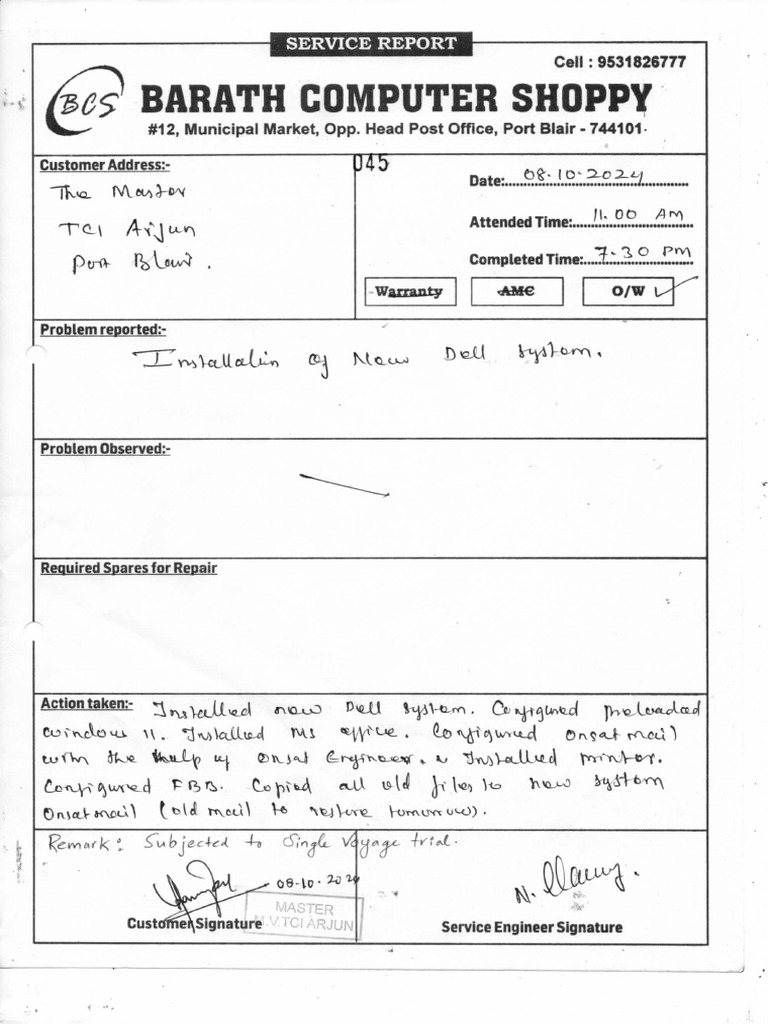 SERVICE REPORT
Cell : 9531826777
BCS
BARATH COMPUTER SHOPPY
#12, Municipal Market, Opp. Head Post Office, Port Blair - 744101.
Customer Address:-
The Master
TCI Arjun
Port Blair.
045
Date: 08.10.2024
Attended Time: 11.00 AM
Completed Time: 7.30 PM
Warranty AMC O/W ✓
Problem reported:-
Installation of New Dell System.
Problem Observed:-
Required Spares for Repair
Action taken:- Installed new Dell System. Configured Preloaded
window 11. Installed MS office. Configured Onsatmail
with the help of Onsat Engineer. Installed printer.
Configured FBB. Copied all old files to new system
Onsatmail (old mail to restore tomorrow).
Remark: Subjected to Single Voyage trial.
08-10-2024
MASTER
M.V.TCI ARJUN
Customer Signature
Service Engineer Signature